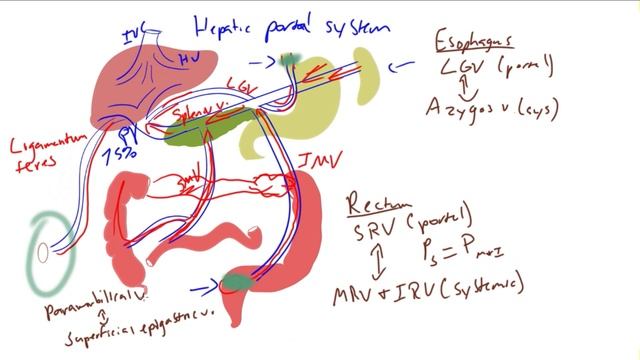 Hepatic portal system
IVC
HV
LGV
Splenic v.
PV
75%
Ligamentum
feres
SMV
IMV
Paraumbilical v.
Superficial epigastric v.
Esophagus
LGV (portal)
Azygos v (sys)
Rectum
SRV (portal)
Ps = Pm+I
MRV + IRV (systemic)